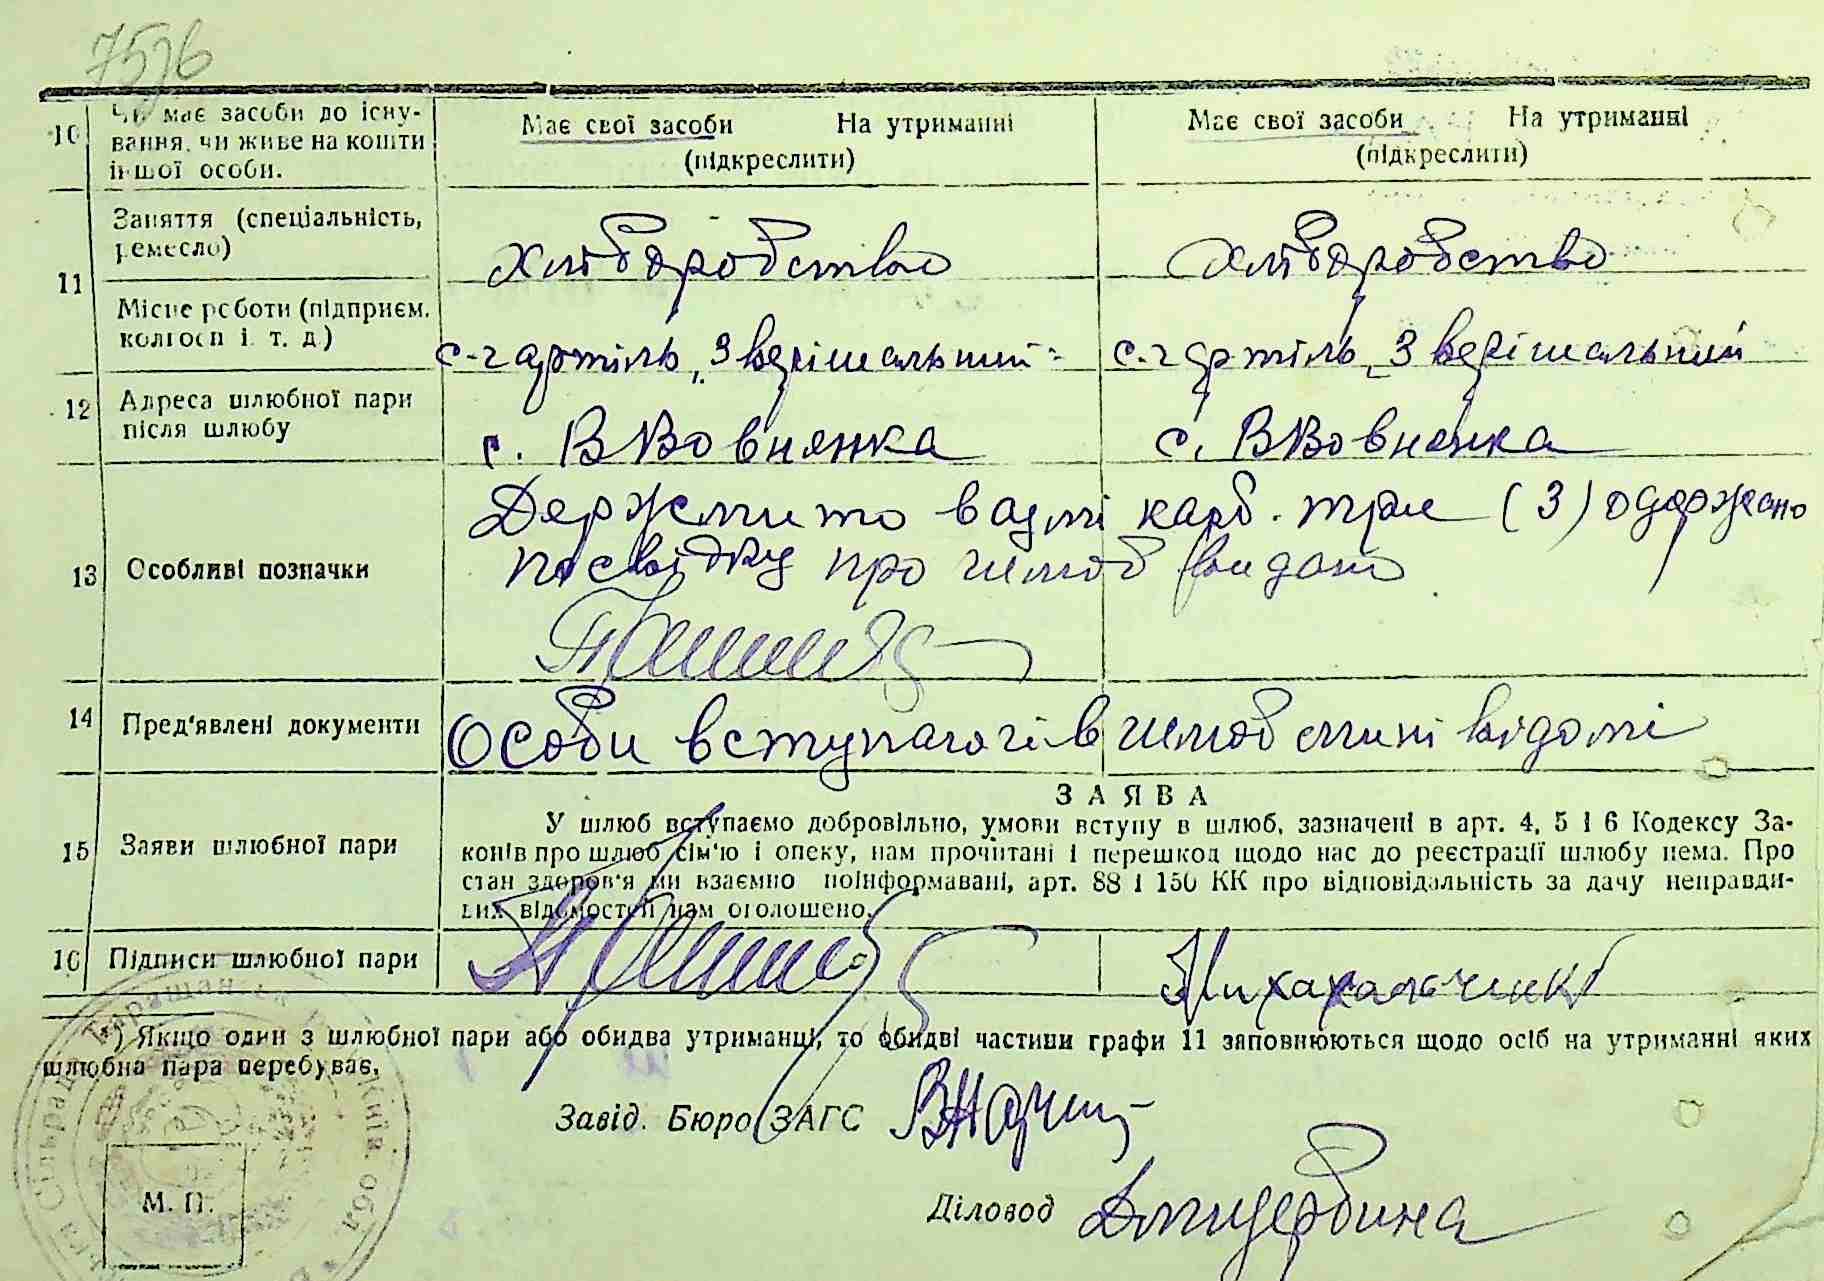 7576
10 Чи має засоби до існу-
вання, чи живе на кошти
іншої особи.
Має свої засоби На утриманні
(підкреслити)
Має свої засоби На утриманні
(підкреслити)
11 Заняття (спеціальність,
ремесло)
хлібдробство
хлібдробство
Місце роботи (підприєм.
колгосп і. т. д.)
с-г артіль „Звєрішальний"
с-г артіль „Звєрішальний
12 Адреса шлюбної пари
після шлюбу
с. ВВовнянка
с. ВВовнянка
13 Особливі позначки
Держмито взяті карб. три (3) одержано
посвідку про шлюб видано
14 Пред'явлені документи
Особи вступаючі в шлюб мині відомі
ЗАЯВА
15 Заяви шлюбної пари
У шлюб вступаємо добровільно, умови вступу в шлюб, зазначені в арт. 4, 5 і 6 Кодексу За-
конів про шлюб сім'ю і опеку, нам прочитані і перешкод щодо нас до реєстрації шлюбу нема. Про
стан здоров'я ми взаємно поінформавані, арт. 88 і 150 КК про відповідальність за дачу неправди-
вих відомостей нам оголошено.
16 Підписи шлюбної пари
Михахальченко
*) Якщо один з шлюбної пари або обидва утриманці, то обидві частини графи 11 заповнюються щодо осіб на утриманні яких
шлюбна пара перебуває.
Завід. Бюро ЗАГС
Діловод
М. П.
Сільрада Таращанськ Київ. обл.